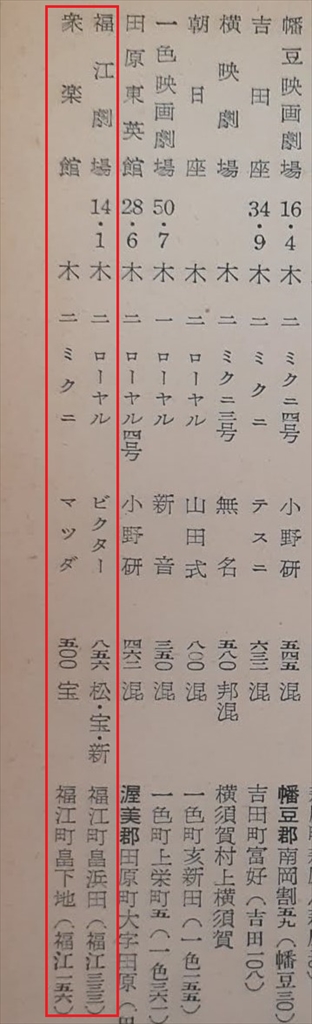 幡豆映画劇場 16・4 木 二 ミクニ四号 小野研 五四五 混 幡豆郡南岡割五九(幡豆三〇)
吉田座 34・9 木 二 ミクニ テスニ 六三二 混 吉田町富好(吉田一〇八)
横映劇場 木 二 ミクニ三号 無名 五八〇 邦混 横須賀村上横須賀
朝日座 木 二 ローヤル 山田式 八〇〇 混 一色町亥新田(一色二五五)
一色映画劇場 50・7 木 一 ローヤル 新音 三五〇 混 一色町上栄町五(一色三六二)
田原東英館 28・6 木 二 ローヤル四号 小野研 四六二 混 渥美郡田原町大字田原(田
福江劇場 14・1 木 二 ローヤル ビクター 八五六 松・宝・新 福江町畠浜田(福江三三三)
衆楽館 木 二 ミクニ マツダ 五〇〇 宝 福江町畠下地(福江一五六)